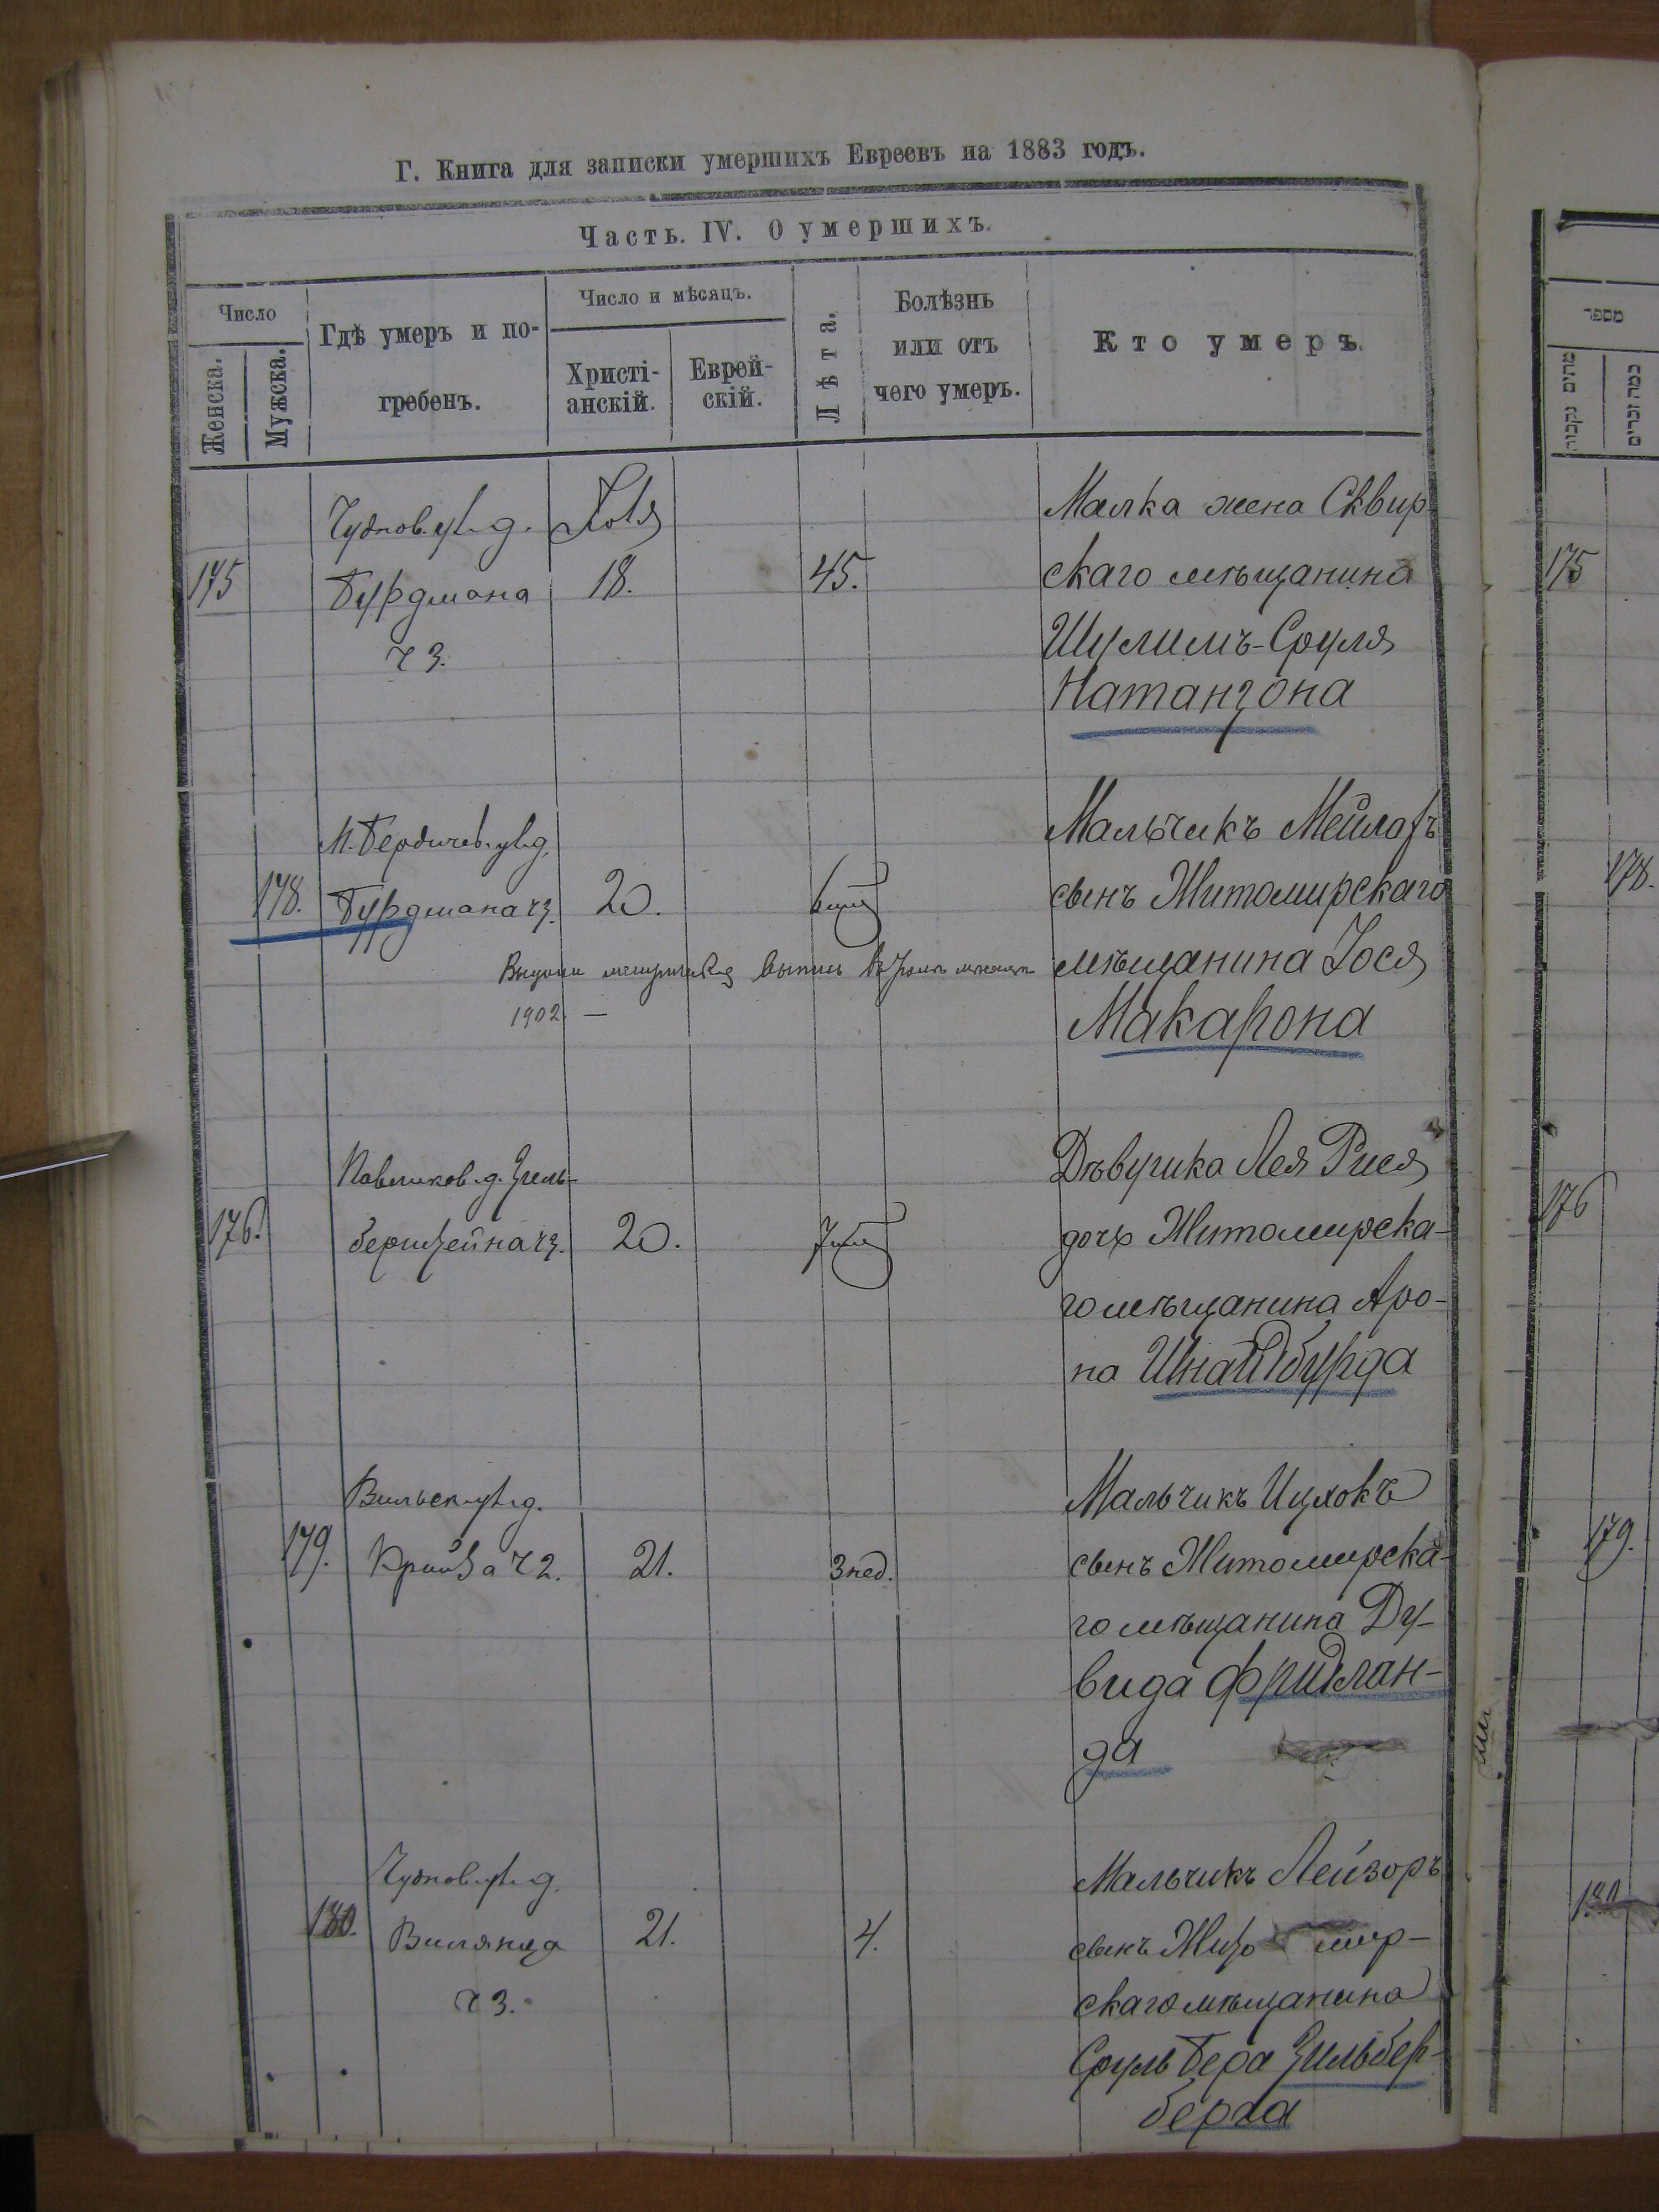 Г. Книга для записки умершихъ Евреевъ на 1883 годъ.
Часть. IV. О умершихъ.
Число
Женска.
Мужска.
Гдѣ умеръ и по-
гребенъ.
Число и мѣсяцъ.
Христі-
анскій.
Еврей-
скій.
Лѣта.
Болѣзнь
или отъ
чего умеръ.
Кто умеръ.
מספר
175
Чуднов. ул. д.
Бурдмана
ч 3.
18.
45.
Малка жена Сквир-
скаго мѣщанина
Шулимъ-Сруля
Натанзона
175
178.
М. Бердичев. ул. д.
Бурдмана ч 3.
20.
Мальчикъ Мейлахъ
сынъ Житомирскаго
мѣщанина Іося
Макарона
выпись
1902. —
178.
176.
Павликов. д. Зиль-
берштейна ч 3.
20.
Дѣвушка Лея Рися
дочь Житомирска-
го мѣщанина Аро-
на Шнайдбурда
176
179.
Вильск. ул. д.
Крайза ч 2.
21.
3 нед.
Мальчикъ Ицхокъ
сынъ Житомирска-
го мѣщанина Ду-
вида Фридлан-
да
179.
180.
Чуднов. ул. д.
ч 3.
21.
4.
Мальчикъ Лейзоръ
сынъ Жито мир-
скаго мѣщанина
Сруль Бера Зильбер-
берга
180